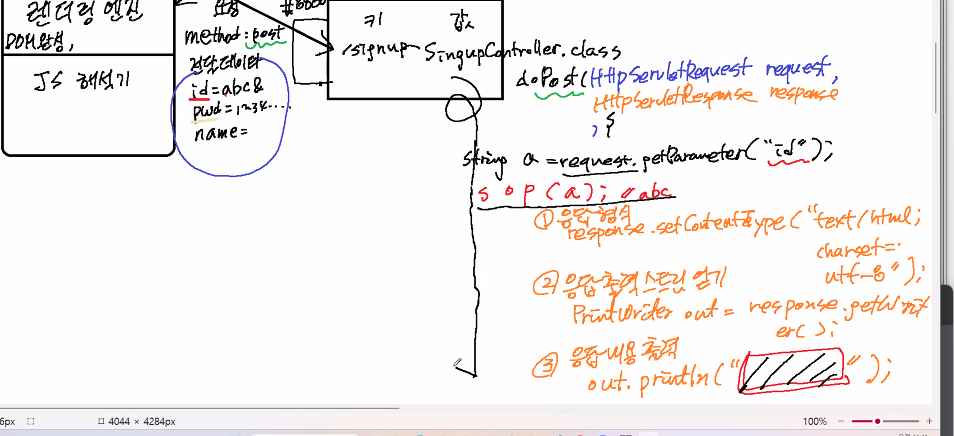 렌더링 엔진
DOM 완성,
JS 해석기
요청
method : post
전달데이터
id = abc &
pwd = 1234....
name =
키 값
/signup SingupController.class
doPost(HttpServletRequest request,
HttpServletResponse response
) {
String a = request.getParameter("id");
s o p (a); // abc
① 응답형식
response.setContentType("text/html;
charset=
utf-8");
② 응답출력스트림 얻기
PrintWriter out = response.getWrit
er( );
③ 응답내용 출력
out.println(" ");
6px
4044 × 4284px
100%